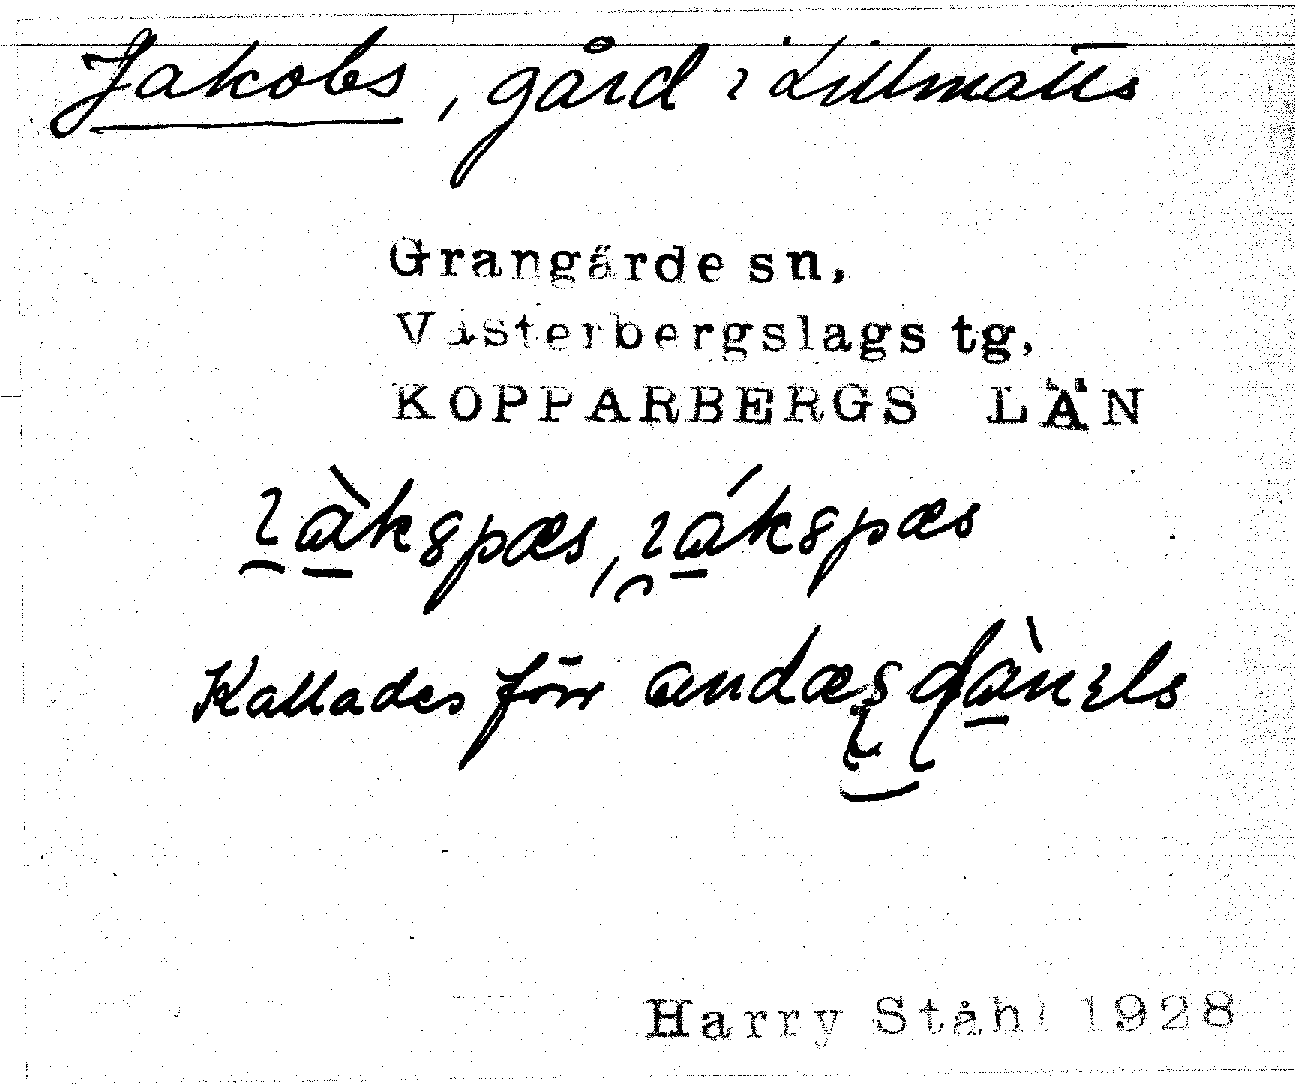 Jakobs, gård i Lillmatts
Grangärde sn,
Västerbergslags tg,
KOPPARBERGS LÄN
ı̯àkspæs, ı̯ákspæs
Kallades förr andæʂ dànɩls
Harry Ståhl 1928